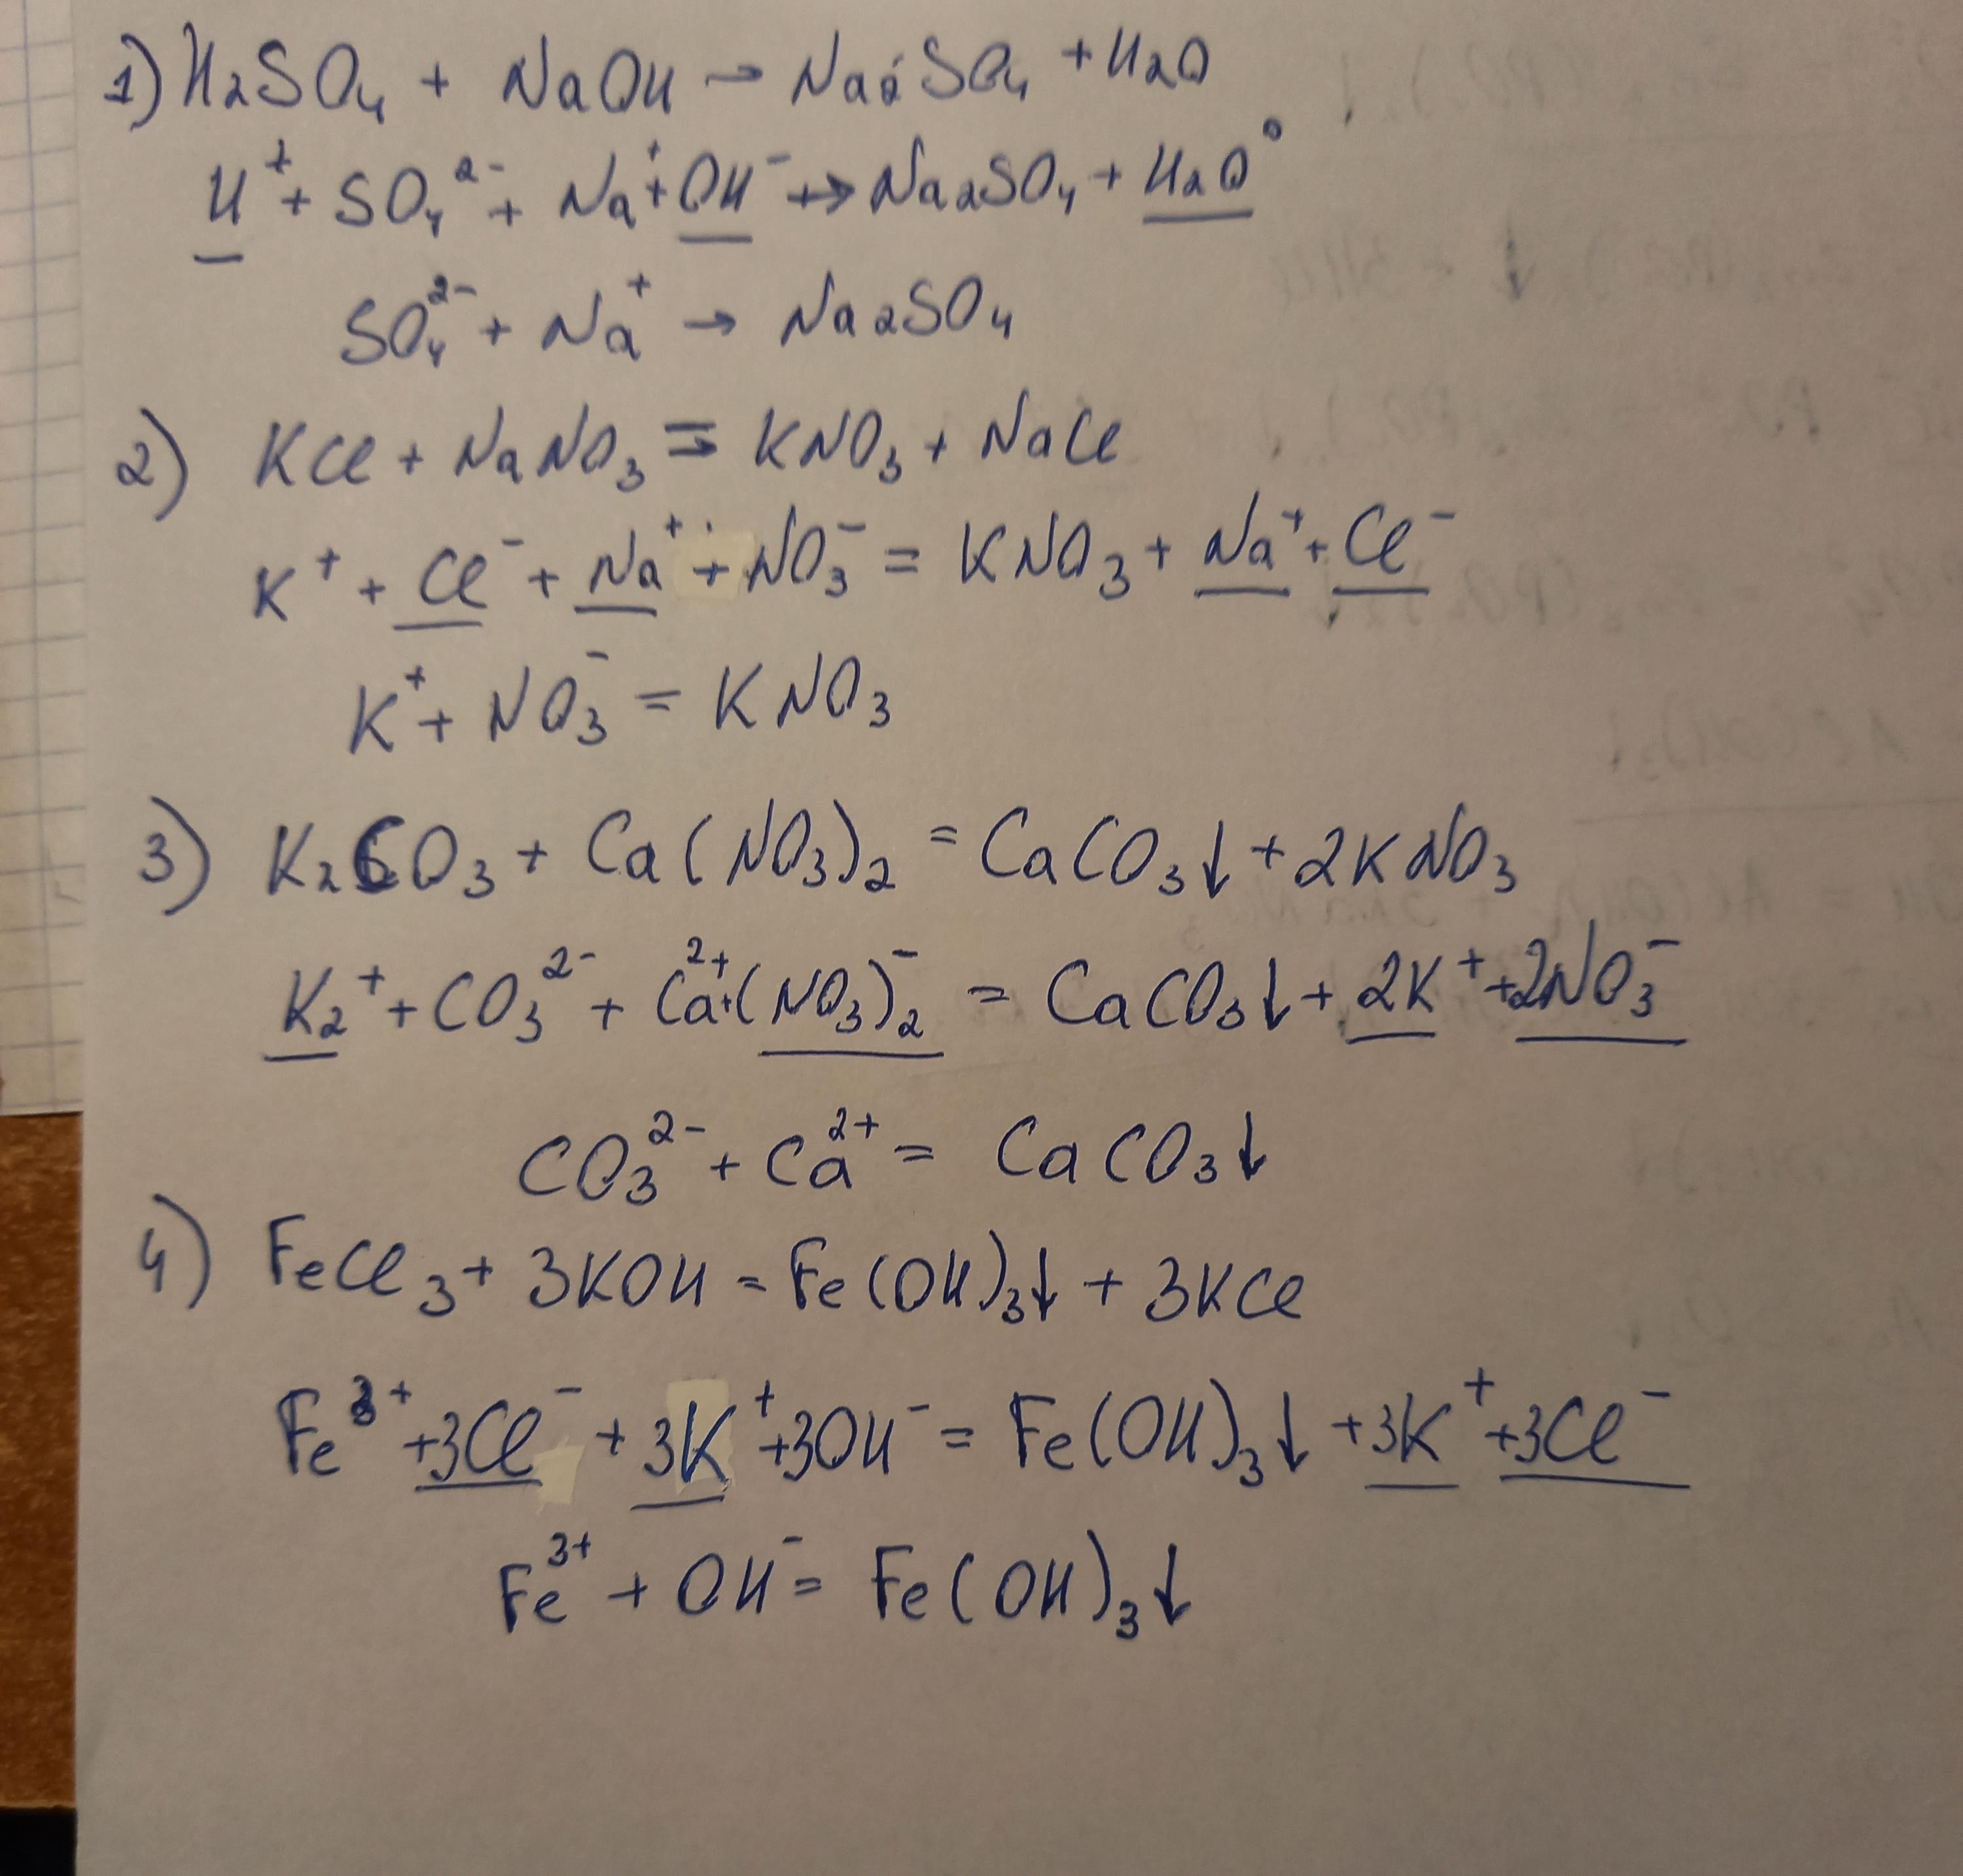 1) H₂SO₄ + NaOH → Na₂SO₄ + H₂O
H⁺ + SO₄²⁻ + Na⁺ + OH⁻ → Na₂SO₄ + H₂O°
SO₄²⁻ + Na⁺ → Na₂SO₄
2) KCl + NaNO₃ = KNO₃ + NaCl
K⁺ + Cl⁻ + Na⁺ + NO₃⁻ = KNO₃ + Na⁺ + Cl⁻
K⁺ + NO₃⁻ = KNO₃
3) K₂CO₃ + Ca(NO₃)₂ = CaCO₃↓ + 2KNO₃
K₂⁺ + CO₃²⁻ + Ca²⁺ + (NO₃)₂⁻ = CaCO₃↓ + 2K⁺ + 2NO₃⁻
CO₃²⁻ + Ca²⁺ = CaCO₃↓
4) FeCl₃ + 3KOH = Fe(OH)₃↓ + 3KCl
Fe³⁺ + 3Cl⁻ + 3K⁺ + 3OH⁻ = Fe(OH)₃↓ + 3K⁺ + 3Cl⁻
Fe³⁺ + OH⁻ = Fe(OH)₃↓